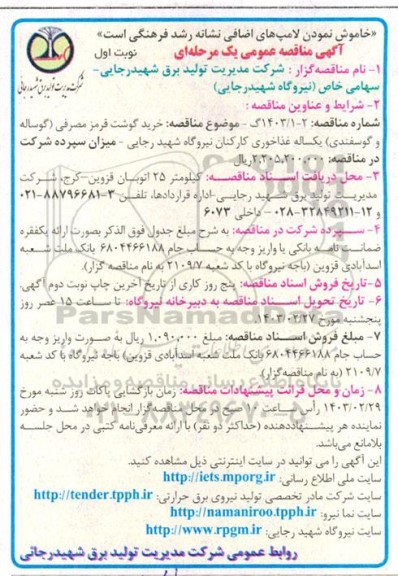 «خاموش نمودن لامپ‌های اضافی نشانه رشد فرهنگی است»
آگهی مناقصه عمومی یک مرحله‌ای
نوبت اول
شرکت مدیریت تولید برق شهیدرجایی
۱- نام مناقصه‌گزار : شرکت مدیریت تولید برق شهیدرجایی-
سهامی خاص (نیروگاه شهیدرجایی)
۲- شرایط و عناوین مناقصه :
شماره مناقصه: ۲-۱۴۰۳/۱گ - موضوع مناقصه: خرید گوشت قرمز مصرفی (گوساله
و گوسفندی) یکساله غذاخوری کارکنان نیروگاه شهید رجایی - میزان سپرده شرکت
در مناقصه: ریال
۳- محل دریافت اسناد مناقصه: کیلومتر ۲۵ اتوبان قزوین-کرج، شرکت
مدیریت تولید برق شهید رجایی-اداره قراردادها، تلفن ۳-۸۸۷۹۶۶۸۱-۰۲۱
و ۱۲-۳۲۸۴۹۲۱۱-۰۲۸ - داخلی ۶۰۷۳
۴- سپرده شرکت در مناقصه: به شرح مبلغ جدول فوق الذکر بصورت ارائه یکفقره
ضمانت نامه بانکی یا واریز وجه به حساب جام ۶۸۰۴۴۶۶۱۸۸ بانک ملت شعبه
اسدآبادی قزوین (باجه نیروگاه با کد شعبه ۲۱۰۹/۷ به نام مناقصه گزار).
۵-تاریخ فروش اسناد مناقصه: پنج روز کاری از تاریخ آخرین چاپ نوبت دوم آگهی.
۶- تاریخ تحویل اسناد مناقصه به دبیرخانه نیروگاه: تا ساعت ۱۵ عصر روز
پنجشنبه مورخ ۱۴۰۳/۰۲/۲۷.
۷- مبلغ فروش اسناد مناقصه: مبلغ ۱,۰۹۰,۰۰۰ ریال به صورت واریز وجه به
حساب جام ۶۸۰۴۴۶۶۱۸۸ بانک ملت شعبه اسدآبادی قزوین (باجه نیروگاه با کد شعبه
۲۱۰۹/۷) به نام مناقصه‌گزار).
۸- زمان و محل قرائت پیشنهادات مناقصه: زمان بازگشایی پاکات روز شنبه مورخ
۱۴۰۳/۰۲/۲۹ رأس ساعت صبح در محل مناقصه‌گزار انجام خواهد شد و حضور
نماینده هر پیشنهاددهنده (حداکثر دو نفر) با ارائه معرفی‌نامه کتبی در محل جلسه
بلامانع می‌باشد.
این آگهی را می توانید در سایت اینترنتی ذیل مشاهده کنید.
سایت ملی اطلاع رسانی: http://iets.mporg.ir
سایت شرکت مادر تخصصی تولید نیروی برق حرارتی: http://tender.tpph.ir
سایت نما نیرو: http://namaniroo.tpph.ir
سایت نیروگاه شهید رجایی: http://www.rpgm.ir
روابط عمومی شرکت مدیریت تولید برق شهیدرجائی
ParsNamadData
پایگاه اطلاع رسانی مناقصه و مزایده